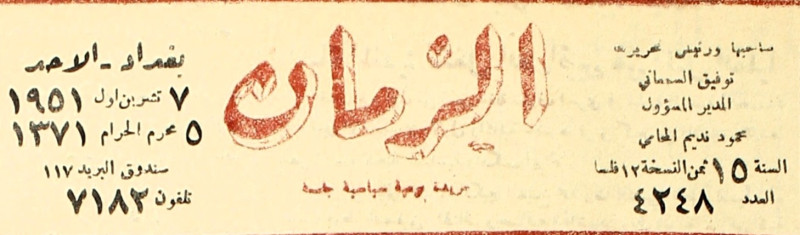 صاحبها ورئيس تحريرها
توفيق السمعاني
المدير المسؤول
محمود نديم المحامي
السنة ١٥ ثمن النسخة ١٢ فلسا
العدد ٤٢٤٨
الزمان
جريدة يومية سياسية جامعة
بغداد - الاحد
٧ تشرين اول ١٩٥١
٥ محرم الحرام ١٣٧١
صندوق البريد ١١٧
تلفون ٧١٨٢